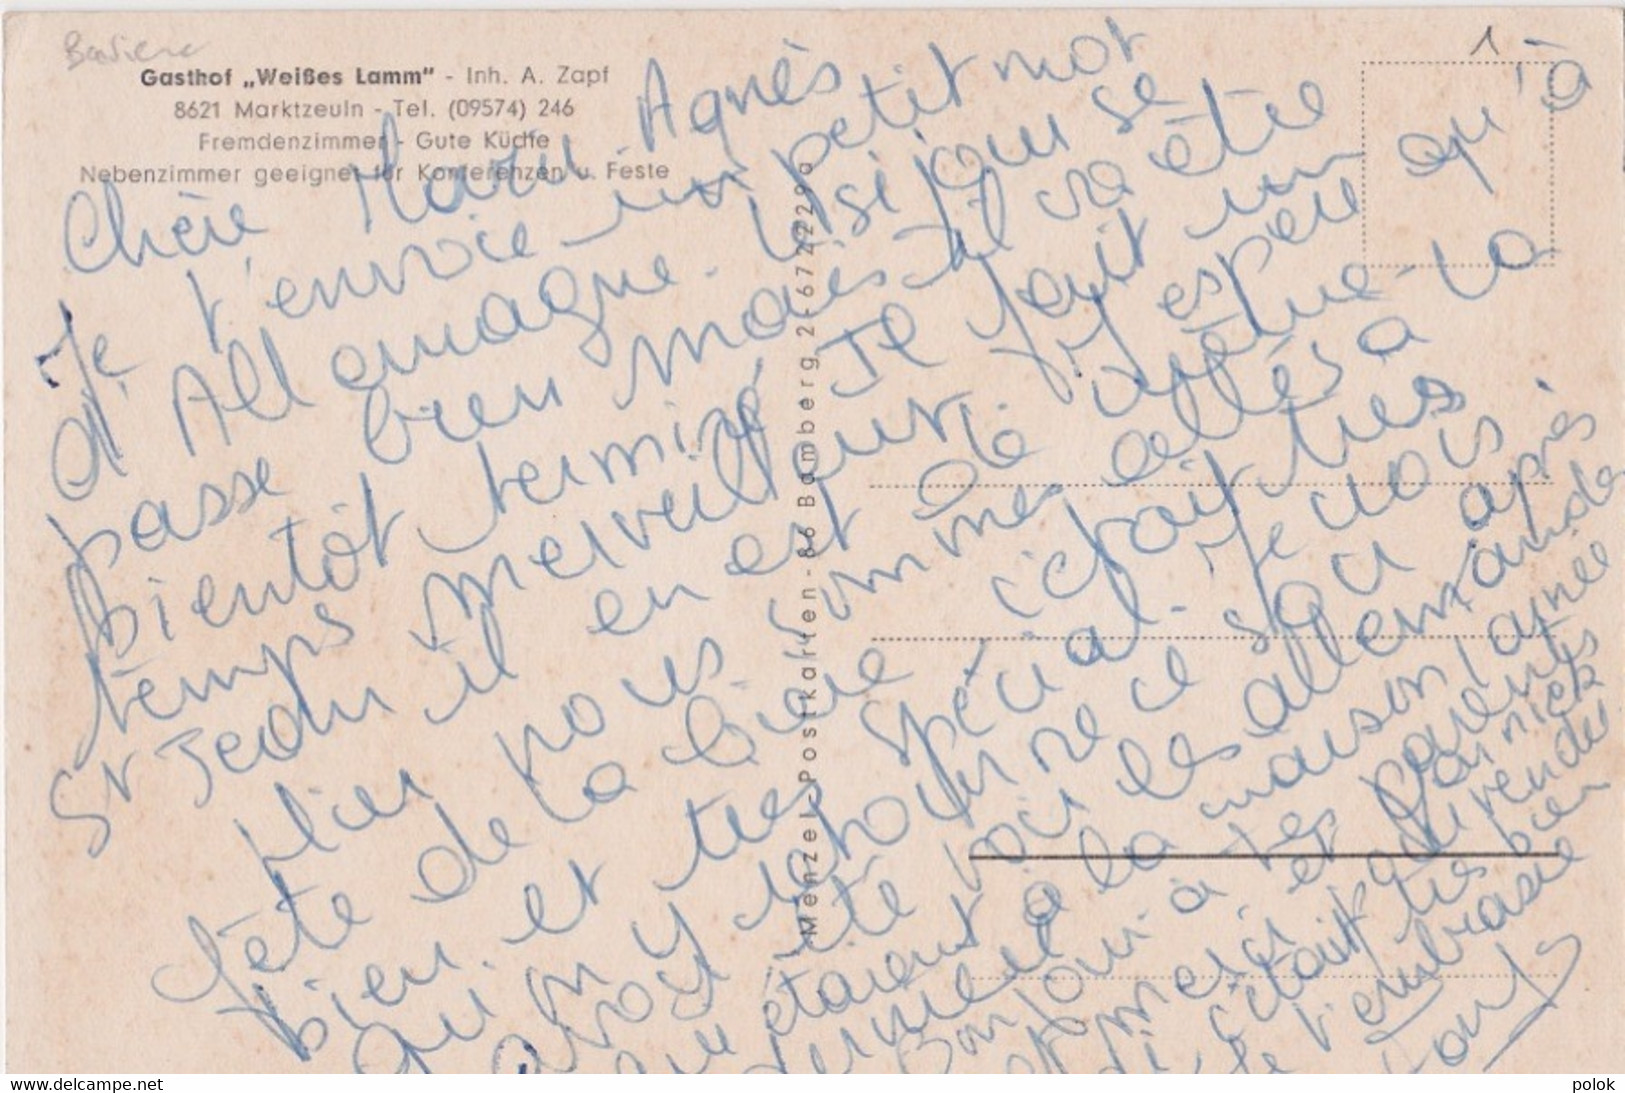 Bavière
1
Gasthof „Weißes Lamm" - Inh. A. Zapf
8621 Marktzeuln - Tel. (09574) 246
Fremdenzimmer - Gute Küche
Nebenzimmer geeignet für Konferenzen u. Feste
Menzel-Postkarten-86 Bamberg 2-6722299
Chère Marie Agnès
Je t'envoie un petit mot
d'Allemagne. Ici tout se
passe bien mais il va être
bientôt terminé Il fait un
temps merveilleux. J'espère qu'à
St Jean il en est de même. La
Hier nous sommes allés à
fête de la bière c'était très
bien et très spécial. Je vois
qu'on y
été voir les allemandes
qui étaient à la maison l'année
dernière
Bonjour à tes parents
et merci
c'était très bien
Je t'embrasse
www.delcampe.net
polok